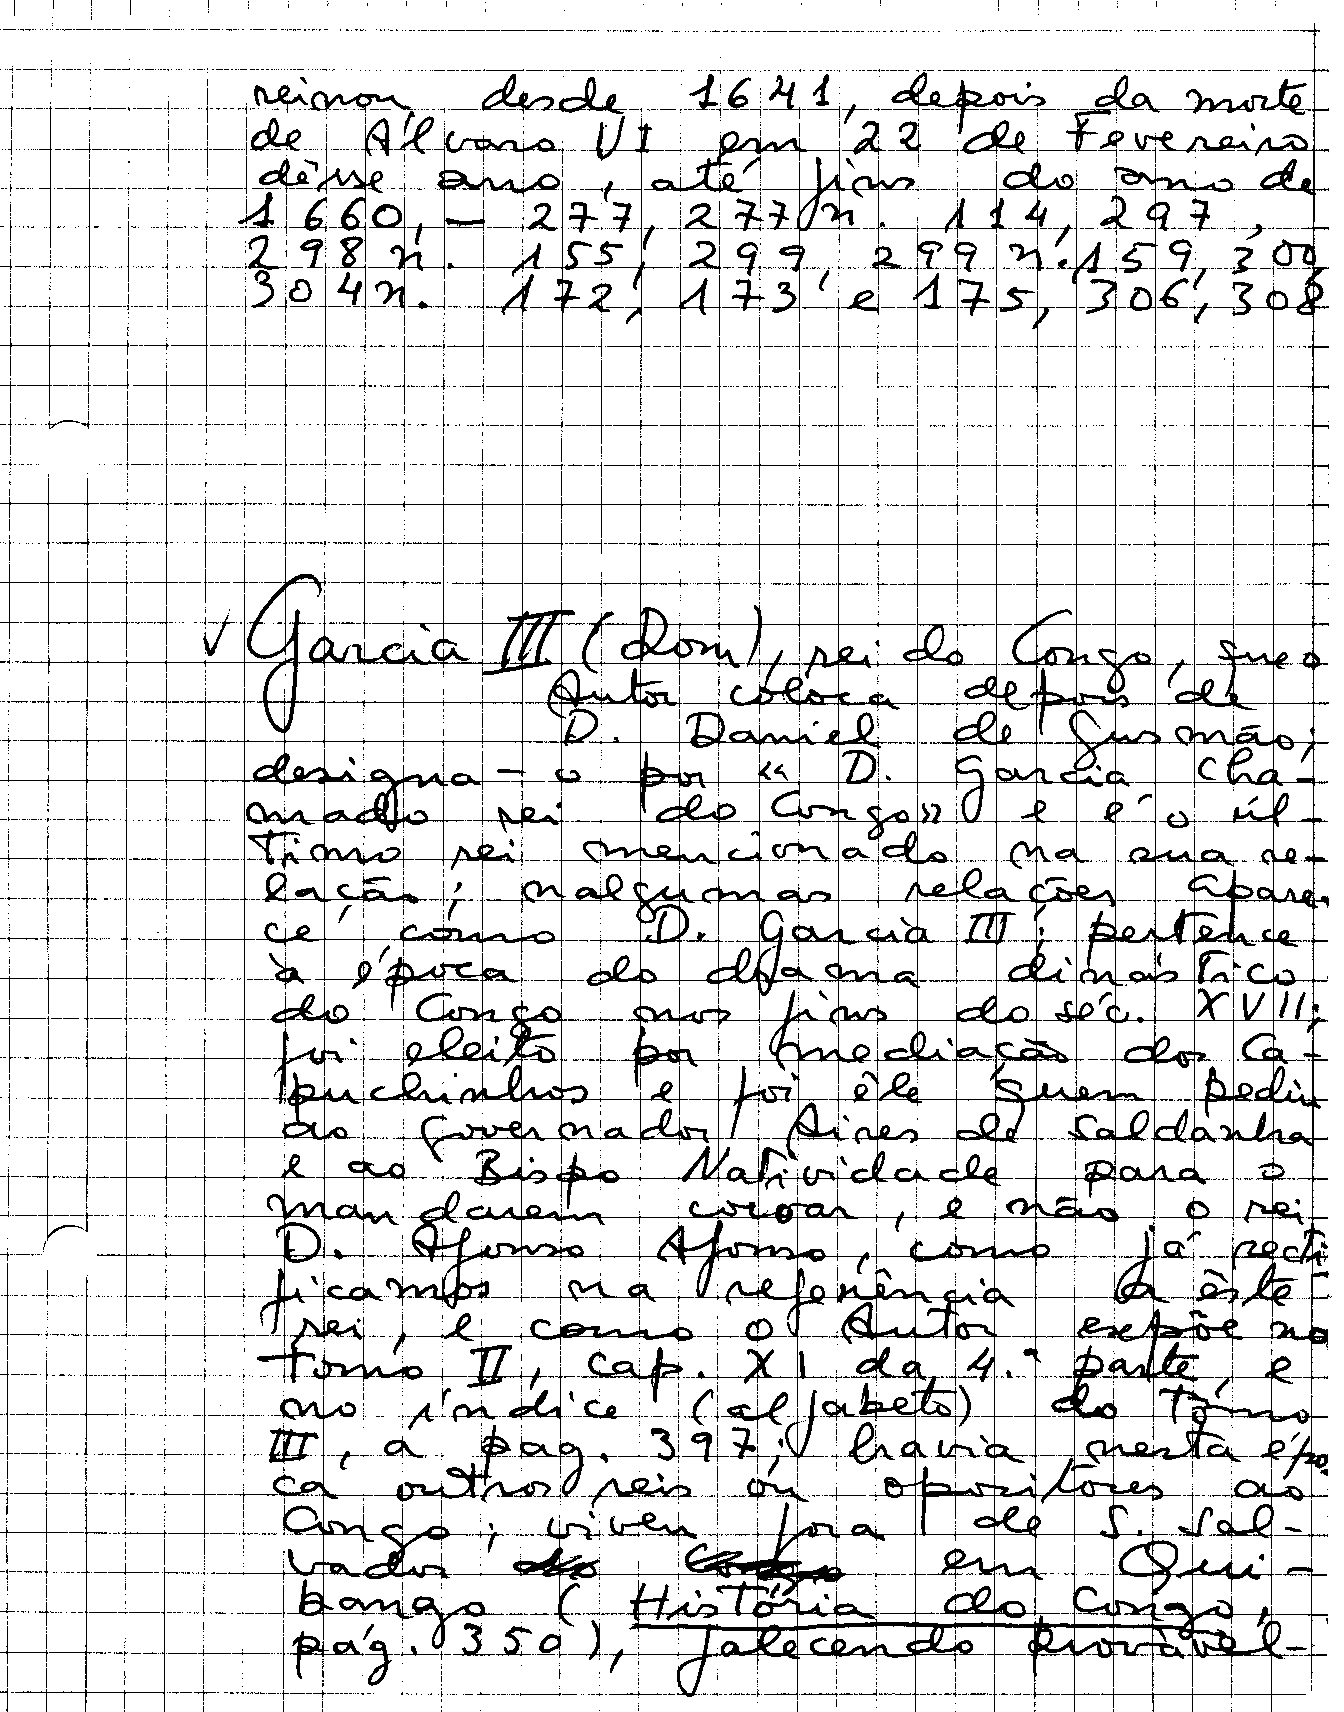 reinou desde 1641, depois da morte
de Álvaro VI em 22 de Fevereiro
dêsse ano, até fins do ano de
1660, – 277, 277 n. 114, 297,
298 n. 155, 299, 299 n. 159, 300,
304 n. 172, 173 e 175, 306, 308
✓ Garcia III (Dom), rei do Congo, que o
Autor coloca depois de
D. Daniel de Gusmão;
designa-o por «D. Garcia cha-
mado rei do Congo» e é o úl-
timo rei mencionado na sua re-
lação; nalgumas relações apare-
ce como D. Garcia III; pertence
à época do drama dinástico
do Congo nos fins do séc. XVII;
foi eleito por mediação dos Ca-
puchinhos e foi êle quem pediu
ao Governador Aires de Saldanha
e ao Bispo Natividade para o
mandarem coroar, e não o rei
D. Afonso Afonso, como já recti-
ficamos na referência a êste
rei, e como o Autor expõe no
Tomo II, cap. XI da 4.ª parte, e
no índice (alfabeto) do Tômo
III, a pag. 397; havia nesta épo-
ca outros reis ou opositores ao
Congo; viveu fora de S. Sal-
vador em Qui-
bango (História do Congo,
pág. 350), falecendo provàvel-